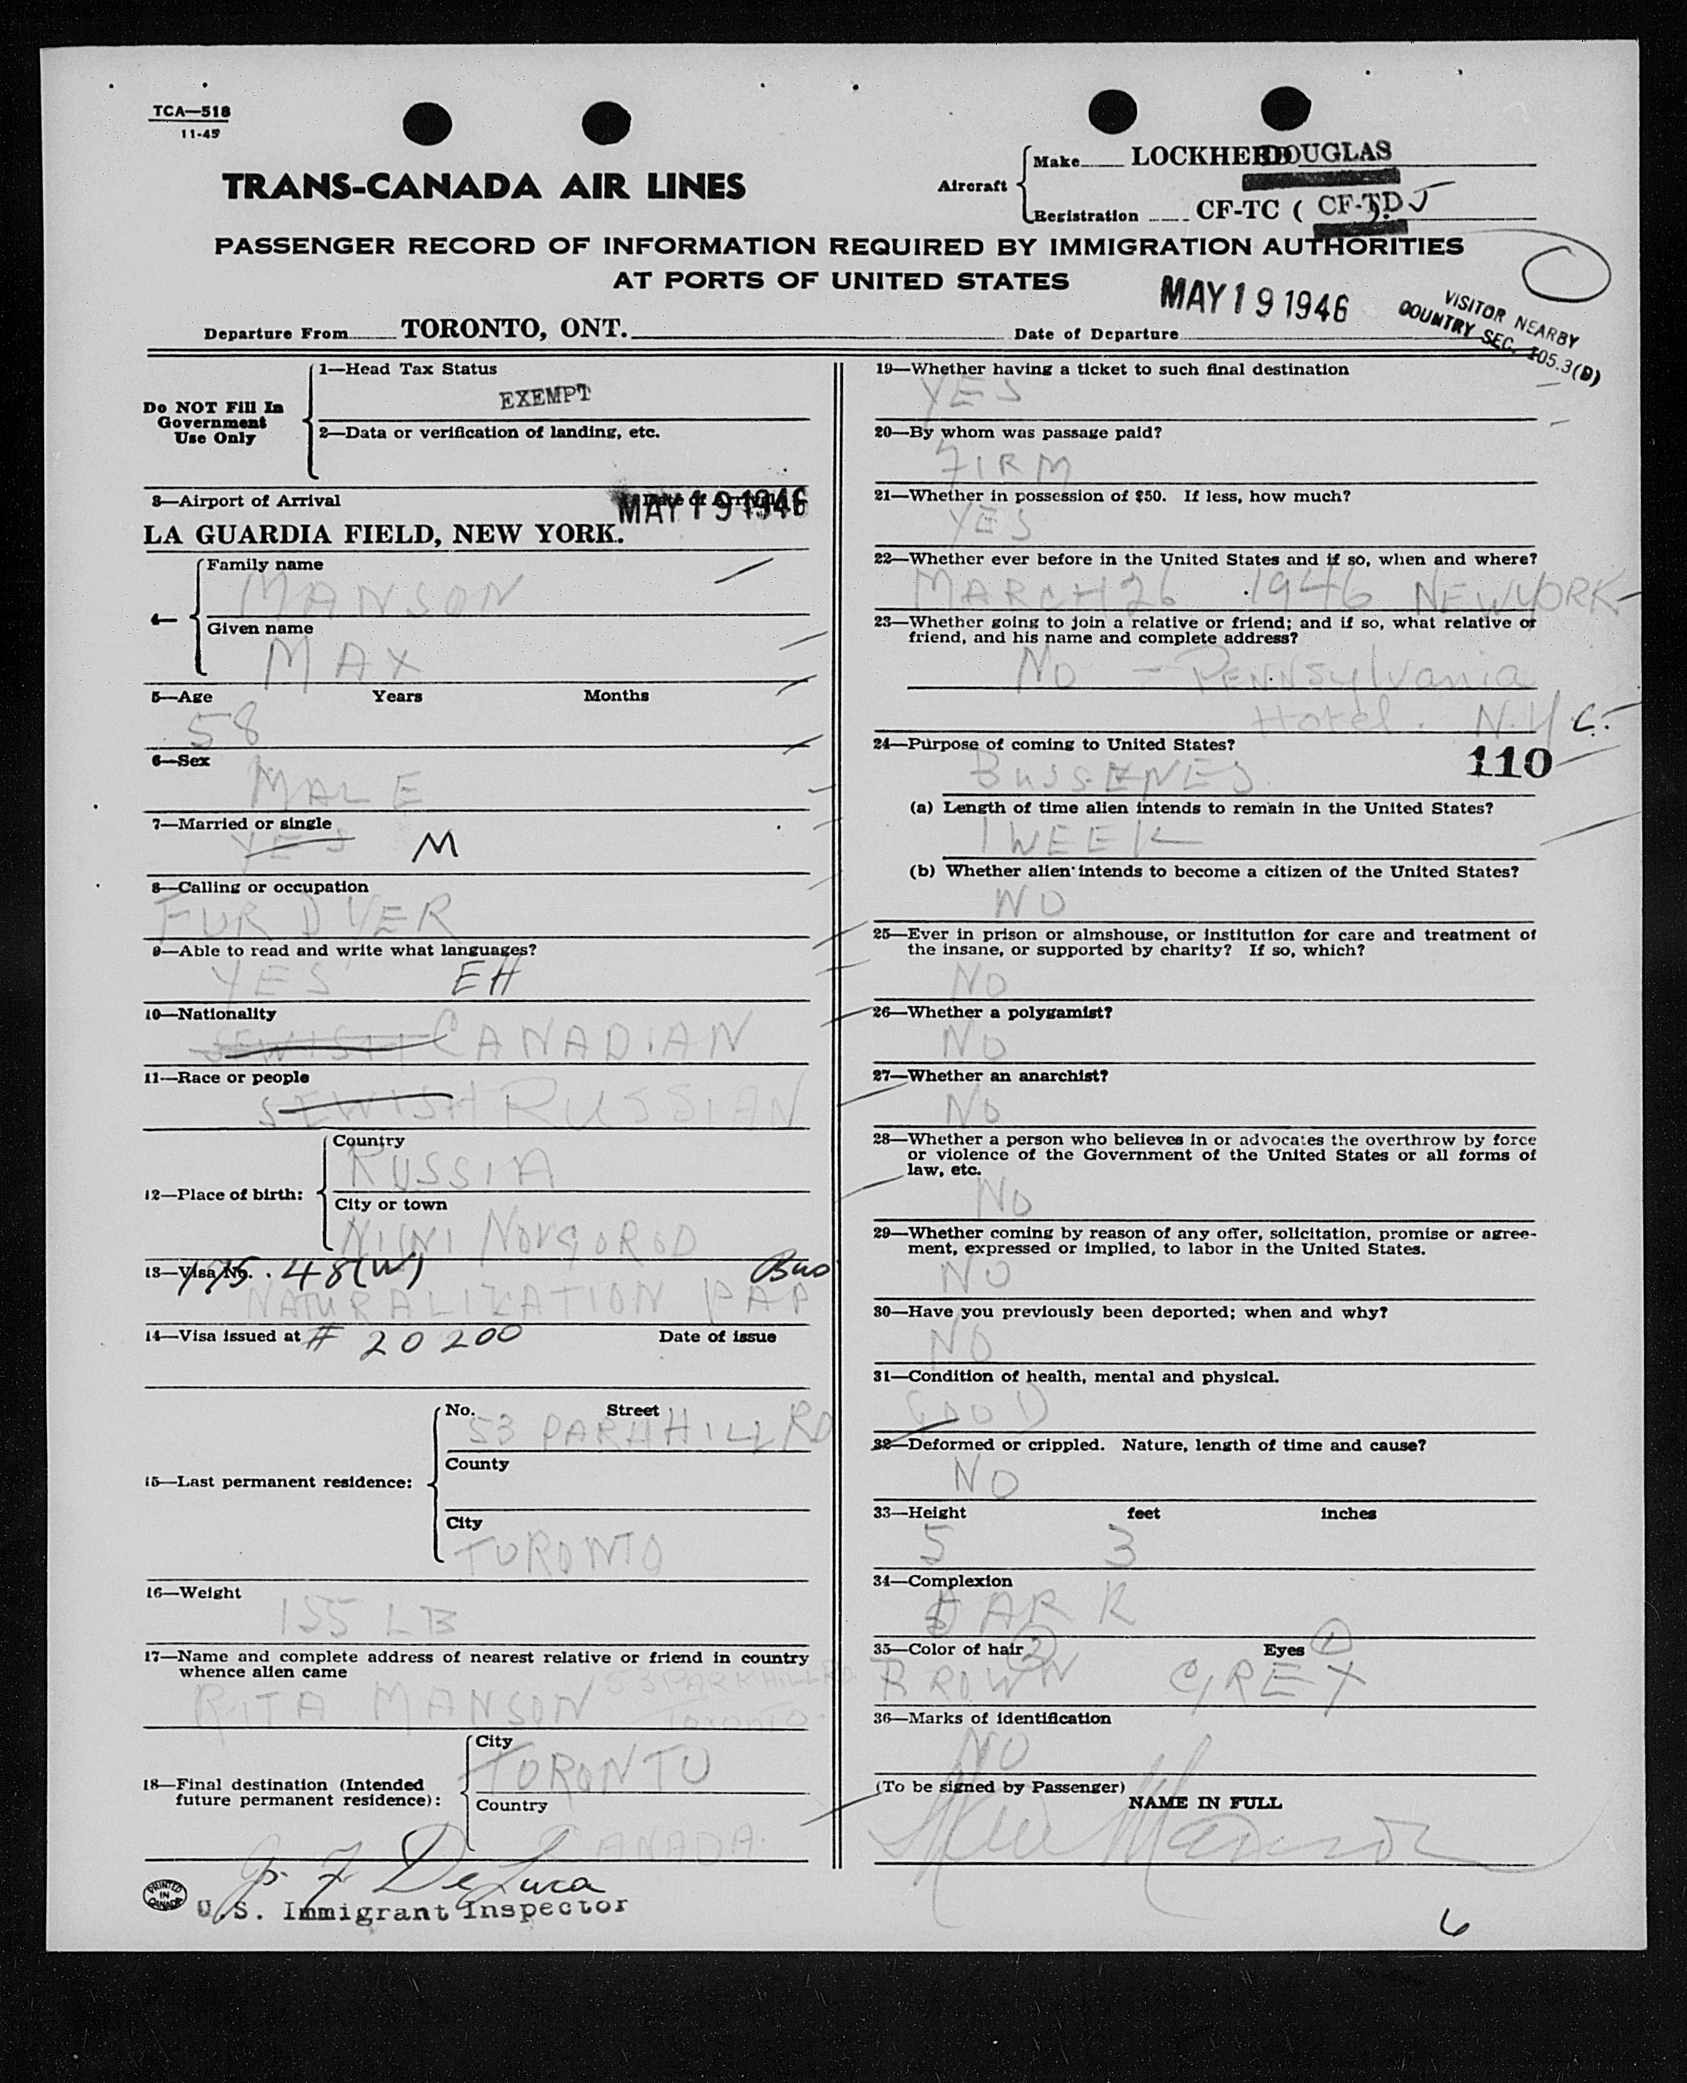 TCA—518
11-45
TRANS-CANADA AIR LINES
Aircraft
Make LOCKHEED DOUGLAS
Registration CF-TC ( CF-TDJ
PASSENGER RECORD OF INFORMATION REQUIRED BY IMMIGRATION AUTHORITIES
AT PORTS OF UNITED STATES
MAY 19 1946
VISITOR NEARBY
COUNTRY SEC. 105.3(B)
Departure From TORONTO, ONT. Date of Departure
Do NOT Fill In
Government
Use Only
1—Head Tax Status
EXEMPT
2—Data or verification of landing, etc.
3—Airport of Arrival Date of Arrival
MAY 19 1946
LA GUARDIA FIELD, NEW YORK.
4—
Family name
MANSON
Given name
MAX
5—Age Years Months
58
6—Sex
MALE
7—Married or single
YES M
8—Calling or occupation
FUR DYER
9—Able to read and write what languages?
YES EH
10—Nationality
JEWISH CANADIAN
11—Race or people
JEWISH RUSSIAN
12—Place of birth:
Country
RUSSIA
City or town
NIJNI NOVGOROD
13—Visa No. 175.48(W) Bus
NATURALIZATION PAP
14—Visa issued at # 20200 Date of issue
15—Last permanent residence:
No. Street
53 PARKHILL RD
County
City
TORONTO
16—Weight
155 LB
17—Name and complete address of nearest relative or friend in country
whence alien came
53 PARKHILL RD
RITA MANSON TORONTO
18—Final destination (Intended
future permanent residence):
City
TORONTO
Country
CANADA
J. F. De Luca
U.S. Immigrant Inspector
PRINTED
IN
CANADA
19—Whether having a ticket to such final destination
YES
20—By whom was passage paid?
FIRM
21—Whether in possession of $50. If less, how much?
YES
22—Whether ever before in the United States and if so, when and where?
MARCH 26 1946 NEW YORK
23—Whether going to join a relative or friend; and if so, what relative or
friend, and his name and complete address?
NO — PENNSylvania
Hotel. N.Y.C.
24—Purpose of coming to United States?
BUSSENES
110
(a) Length of time alien intends to remain in the United States?
1 WEEK
(b) Whether alien intends to become a citizen of the United States?
NO
25—Ever in prison or almshouse, or institution for care and treatment of
the insane, or supported by charity? If so, which?
NO
26—Whether a polygamist?
NO
27—Whether an anarchist?
NO
28—Whether a person who believes in or advocates the overthrow by force
or violence of the Government of the United States or all forms of
law, etc.
NO
29—Whether coming by reason of any offer, solicitation, promise or agree-
ment, expressed or implied, to labor in the United States.
NO
30—Have you previously been deported; when and why?
NO
31—Condition of health, mental and physical.
GOOD
32—Deformed or crippled. Nature, length of time and cause?
NO
33—Height feet inches
5 3
34—Complexion
DARK
35—Color of hair 2 Eyes 1
BROWN GREY
36—Marks of identification
NO
(To be signed by Passenger)
NAME IN FULL
Max Manson
6